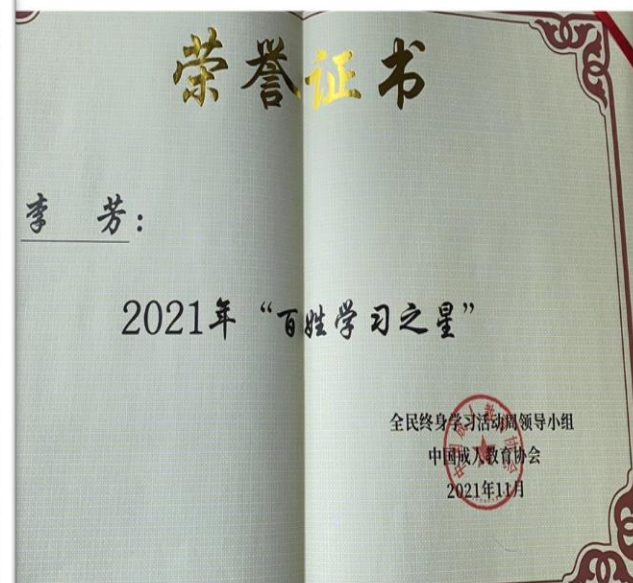 荣誉证书
李 芳：
2021年“百姓学习之星”
全民终身学习活动周领导小组
中国成人教育协会
2021年11月